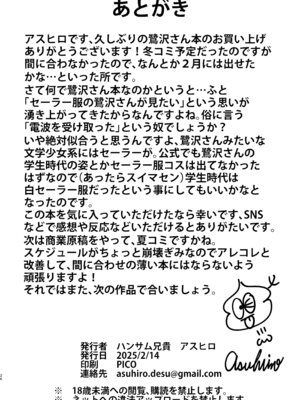 あとがき
アスヒロです、久しぶりの鷺沢さん本のお買い上げ
ありがとうございます！冬コミ予定だったのですが
間に合わなかったので、なんとか２月には出せた
かな…といった所です。
さて何で鷺沢さん本なのかというと…ふと
「セーラー服の鷺沢さんが見たい」という思いが
湧き上がってきたからなんですよね。俗に言う
「電波を受け取った」という奴でしょうか？
いや絶対似合うと思うんですよ、鷺沢さんみたいな
文学少女系にはセーラーが。公式でも鷺沢さんの
学生時代の姿とかセーラー服コスは出てなかった
はずなので（あったらスイマセン）学生時代は
白セーラー服だったという事にしてもいいかなと
なったのです。
この本を気に入っていただけたなら幸いです、SNS
などで感想や反応などいただけるとありがたいです。
次は商業原稿をやって、夏コミですかね。
スケジュールがちょっと崩壊ぎみなのでアレコレと
改善して、間に合わせの薄い本にはならないよう
頑張りますよ！
それではまた、次の作品で合いましょう。
asuhiro
発行者　ハンサム兄貴　アスヒロ
発行日　2025/2/14
印刷　PICO
連絡先　asuhiro.desu@gmail.com
※　18歳未満への閲覧、購読を禁止します。
※　ネットへの違法アップロードを禁止します。